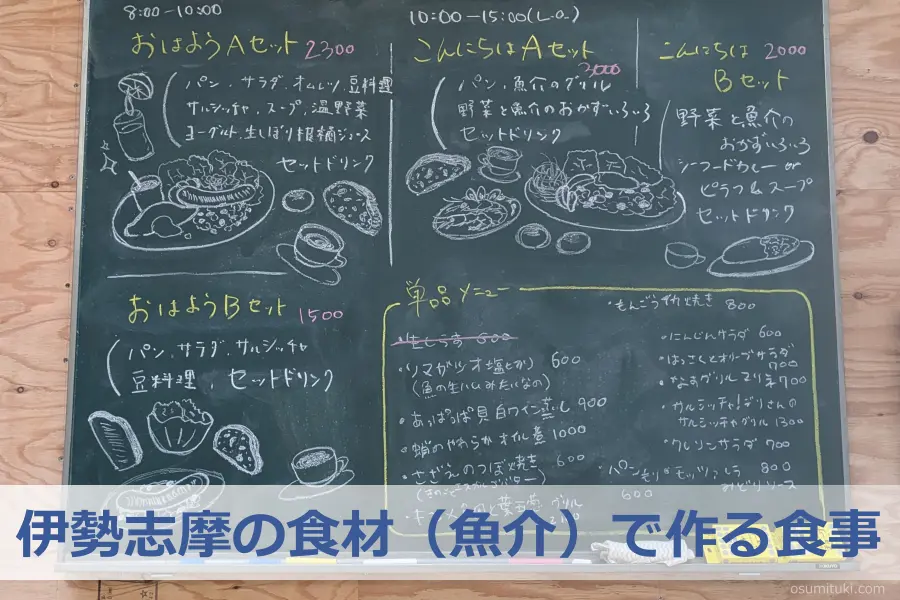 8:00-10:00
おはようAセット 2300
パン、サラダ、オムレツ、豆料理
サルシッチャ、スープ、温野菜
ヨーグルト、生しぼり柑橘ジュース
セットドリンク
10:00-15:00(L.O.)
こんにちはAセット
3000
パン、魚介のグリル
野菜と魚介のおかずいろいろ
セットドリンク
こんにちは 2000
Bセット
野菜と魚介の
おかずいろいろ
シーフードカレー or
ピラフ&スープ
セットドリンク
おはようBセット 1500
パン、サラダ、サルシッチャ
豆料理、セットドリンク
単品メニュー
生しらす 600
・ソマガツオ塩とり 600
(魚の生ハムみたいなの)
・あっぱっぱ貝白ワイン蒸し 900
・蛸のやわらかオイル煮 1000
・さざえのつぼ焼き 600
・もんごう 焼き 800
・にんじんサラダ 600
・はっさくとオリーブサラダ
700
・なすグリルマリネ 700
・サルシッチャ!デリさんの
サルシッチャグリル 1300
・クレソンサラダ 700
・パンもり
600
モッツァレラ 800
みどりソース
グリル
伊勢志摩の食材（魚介）で作る食事
osumituki.com